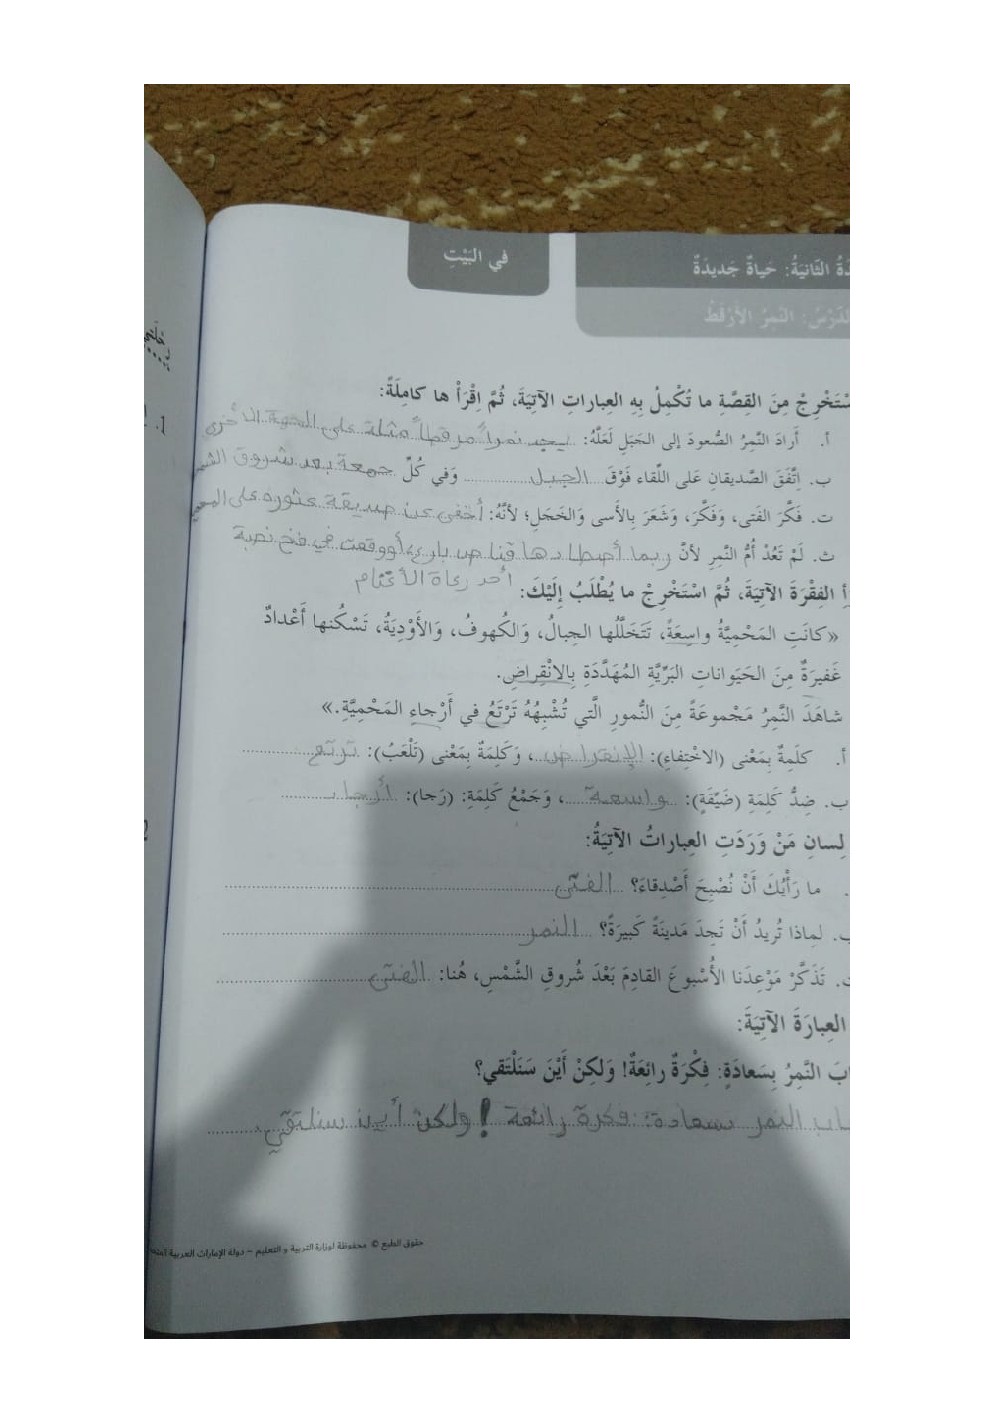 في البَيْتِ
الثّانِيَةُ: حَياةٌ جَديدَةٌ
النَّمِرُ الأَرْقَطُ
مِنَ القِصَّةِ ما تُكْمِلُ بِهِ العِباراتِ الآتِيَةَ، ثُمَّ اِقْرَأْ ها كامِلَةً:
أ. أَرادَ النَّمِرُ الصُّعودَ إلى الجَبَلِ لَعَلَّهُ: يجد نمراً مرقطاً مثله على الأخرى
ب. اِتَّفَقَ الصَّديقانِ عَلى اللِّقاء فَوْقَ الجبل وَفي كُلِّ جمعة بعد شروق
ت. فَكَّرَ الفَتى، وَفَكَّرَ، وَشَعَرَ بِالأَسى وَالخَجَلِ؛ لأنَّهُ: أخفى عن صديقة عثوره على
ث. لَمْ تَعُدْ أُمُّ النَّمِرِ لأنَّ ربما أصطادها قناص بارع، أو وقعت في فخ نصبة
أحد رعاة الأغنام
الفِقْرَةَ الآتِيَةَ، ثُمَّ اسْتَخْرِجْ ما يُطْلَبُ إلَيْكَ:
«كانَتِ المَحْمِيَّةُ واسِعَةً، تَتَخَلَّلُها الجِبالُ، وَالكُهوفُ، وَالأَوْدِيَةُ، تَسْكُنها أَعْدادٌ
غَفيرَةٌ مِنَ الحَيَواناتِ البَرِّيَّةِ المُهَدَّدَةِ بِالاِنْقِراضِ.
شاهَدَ النَّمِرُ مَجْموعَةً مِنَ النُّمورِ الَّتي تُشْبِهُهُ تَرْتَعُ في أَرْجاءِ المَحْمِيَّةِ.»
أ. كلَمِةٌ بِمَعْنى (الاخْتِفاءِ): الإنقراض، وَكَلِمَةٌ بِمَعْنى (تَلْعَبُ): ترتع
ب. ضِدُّ كَلِمَةِ (ضَيِّقَةٍ): واسعة، وَجَمْعُ كَلِمَةِ: (رَجا): أرجاء
لِسانِ مَنْ وَرَدَتِ العِباراتُ الآتِيَةُ:
ما رَأْيُكَ أَنْ نُصْبِحَ أَصْدِقاءَ؟ الفتى
ب. لِماذا تُريدُ أَنْ تَجِدَ مَدينَةً كَبيرَةً؟ النمر
ت. تَذَكَّرْ مَوْعِدَنا الأُسْبوعَ القادِمَ بَعْدَ شُروقِ الشَّمْسِ، هُنا: الفتى
العِبارَةَ الآتِيَةَ:
النَّمِرُ بِسَعادَةٍ: فِكْرَةٌ رائِعَةٌ! وَلكِنْ أَيْنَ سَنَلْتَقي؟
النمر بسعادة: فكرة رائعة! ولكن أين سنلتقي
حقوق الطبع © محفوظة لوزارة التربية و التعليم – دولة الإمارات العربية